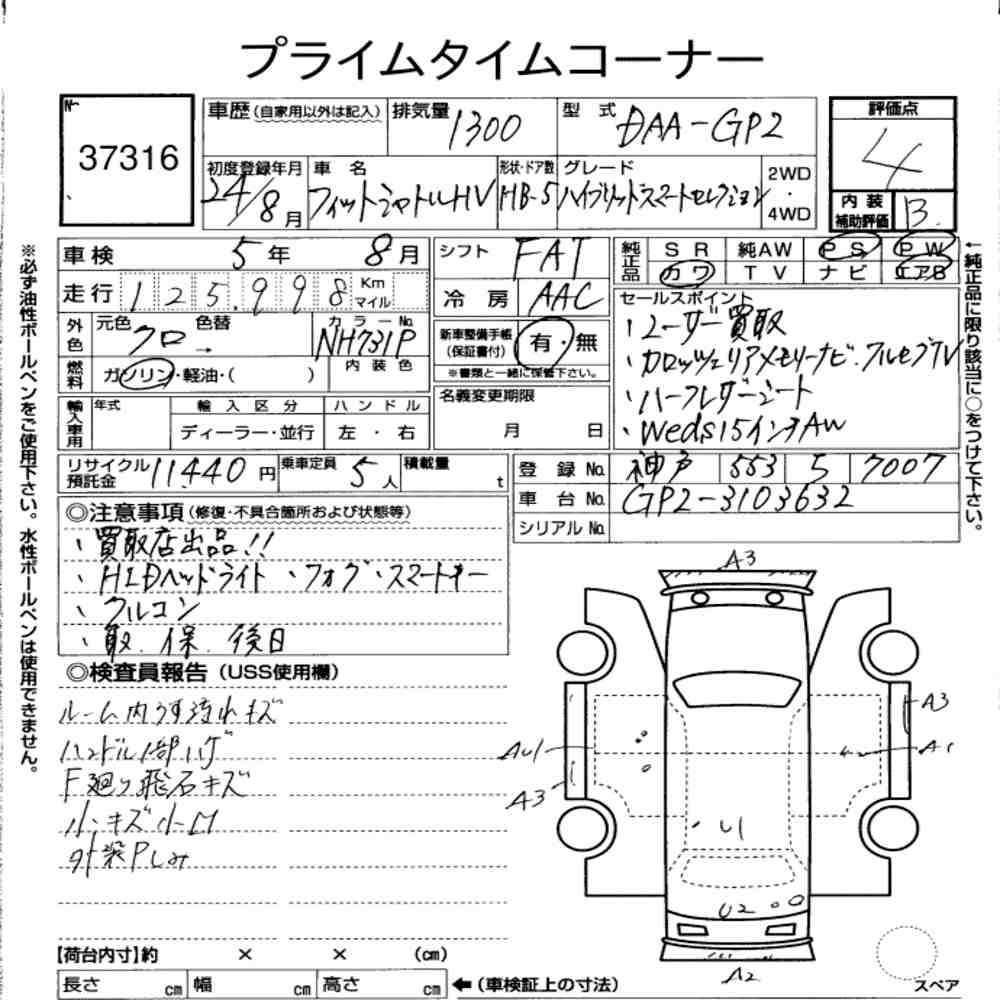 プライムタイムコーナー
No
37316
車歴(自家用以外は記入)
排気量 1300
型式 DAA-GP2
評価点
4
初度登録年月
24/8月
車名
フィットシャトルHV
形状・ドア数
HB-5
グレード
ハイブリッドスマートセレクション
2WD
・
4WD
内装
補助評価 B
車検 5年 8月
走行 125,998 Km
マイル
外色
元色 クロ → 色替
カラーNo.
NH731P
内装色
燃料
ガソリン・軽油・( )
輸入車用
年式
輸入区分
ディーラー・並行
ハンドル
左・右
シフト FAT
冷房 AAC
新車整備手帳
(保証書付)
有・無
※書類と一緒に保管下さい。
名義変更期限
月 日
純正品
SR 純AW PS PW
カワ TV ナビ エアB
セールスポイント
・ユーザー買取
・カロッツェリアメモリーナビ・フルセグTV
・ハーフレザーシート
・Weds15インチAW
←純正品に限り該当に○をつけて下さい。
※必ず油性ボールペンをご使用下さい。水性ボールペンは使用できません。
リサイクル
預託金 11,440円
乗車定員 5人
積載量 t
登録No. 神戸 553 5 7007
車台No. GP2-3103632
シリアルNo.
◎注意事項(修復・不具合箇所および状態等)
・買取店出品!!
・HIDヘッドライト・フォグ・スマートキー
・クルコン
・取.保.後日
◎検査員報告(USS使用欄)
ルーム内うす汚れキズ
ハンドル1部ハゲ
F廻り飛石キズ
小キズ小凹
外装Pしみ
A3
A3
AU1
A1
A3
U1
U2
A2
スペア
【荷台内寸】約 × × (cm)
長さ cm 幅 cm 高さ cm ←(車検証上の寸法)